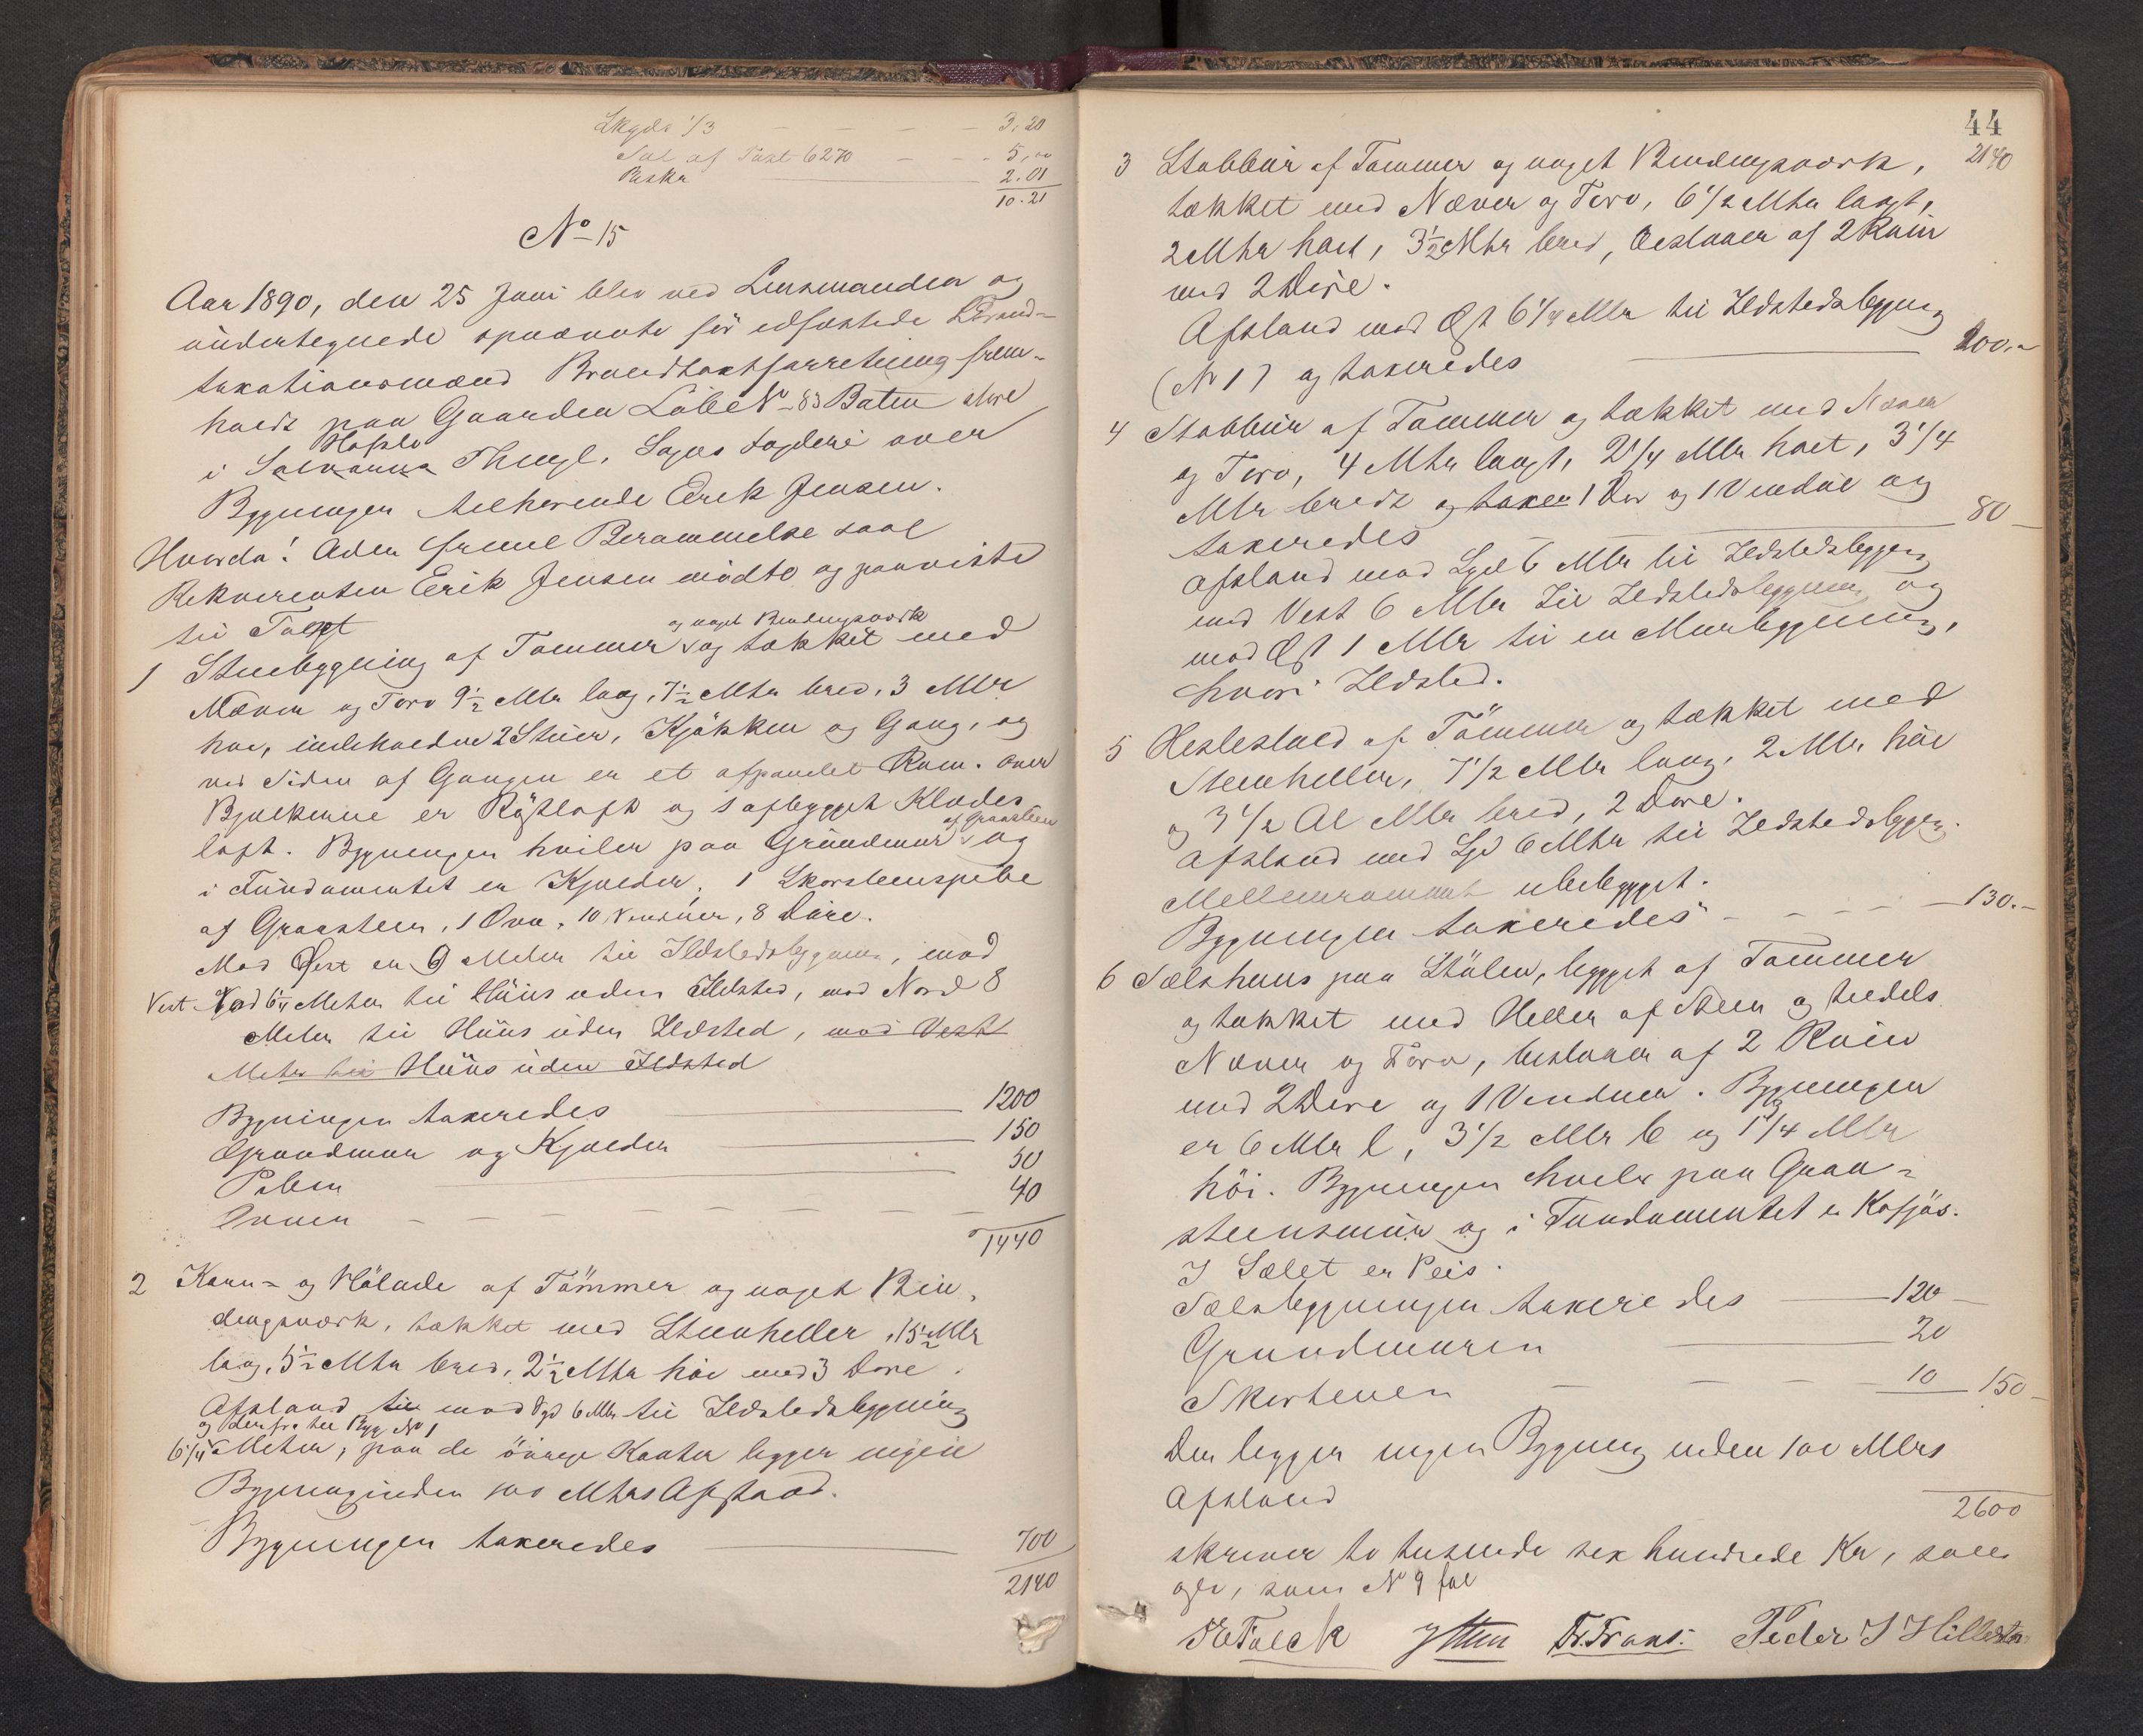 Skyds 1/3 — — — — 3,20
Sal af Taxt 6270 — — - 5,00
2.01
10.21
No 15
Aar 1890, den 25 Juni blev ved Lensmanden og
undertegnede opnævnte før edfæstede Brand-
taxationsmænd Brandtaxtforretning frem-
holdt paa Gaarden Löbe No 83 Baten store
Hafslo
i Solvorns Thingl. Sogns Fogderi over
Bygninger tilhørende Erik Jensen.
Hvorda! Uden fremel Berammelse saal
Rekvirenten Erik Jensen mödte og paaviste
til Taxt
og noget Bindingsværk
1 Stuebygning af Tømmer og tækket med
Næver og Torv 9½ Mtr lang, 7½ Mtr bred, 3 Mtr
høi, indeholder 2 Stuer, Kjøkken og Gang, og
ved Siden af Gangen er et afpanelet Rum. Over
Bjelkerne er Röstloft og 1 afbygget Klædes
af Graasteen
loft. Bygningen hviler paa Grundmur og
i Fundamentet er Kjælder, 1 Skorsteenspibe
af Graasteen, 1 Ovn, 10 Vinduer, 8 Døre.
Mod Øst er 9 Meter til Ildstedsbygning, mod
Vest 6¼ Meter til Huus uden Ildsted, mod Nord 8
Meter til Huus uden Ildsted, mod Vest
Meter til Huus uden Ildsted
Bygningen taxeredes — 1200
Grundmur og Kjælder — 150
Piben — 50
Ovnen — — — — — — — 40
1440
2 Korn- og Hölade af Tömmer og noget Bin-
dingsværk, tækket med Steenheller, 15½ Mtr
lang, 5½ Mtr bred, 2½ Mtr høi med 3 Døre.
Afstand til mod Syd 6 Mtr til Ildstedsbygning
og derfra til Byg No 1
6¼ Meter, paa de övrige Kanter ligger ingen
Bygning inden 100 Mtrs Afstand.
Bygningen taxeredes — 700
2140
44
2140
3 Stabbur af Tømmer og noget Bindingsværk,
tækket med Næver og Torv, 6½ Mtr langt,
2 Mtr høit, 3½ Mtr bred, bestaaer af 2 Rum
med 2 Døre.
Afstand mod Øst 6¼ Mtr til Ildstedsbygning
(No 1) og taxeredes — 200,-
4 Stabbur af Tømmer og tækket med Næver
og Torv, 4 Mtr langt, 2¼ Mtr høit, 3¼
Mtr bredt og taxer 1 Dør og 1 Vindue og
taxeredes — 80 —
Afstand mod Syd 6 Mtr til Ildstedsbygning
mod Vest 6 Mtr til Ildstedsbygning og
mod Øst 1 Mtr til en Murbygning,
hvori Ildsted.
5 Hestestald af Tömmer og tækket med
Steenheller, 7½ Mtr lang, 2 Mtr høi
og 3½ Al Mtr bred, 2 Døre.
Afstand mod Syd 6 Mtr til Ildstedsbygn.
Mellemrummet ubebygget.
Bygningen taxeredes - - - - — 130.-
6 Sælshuus paa Stölen, bygget af Tømmer
og tækket med Heller af Steen og tildels
Næver og Torv, bestaaer af 2 Rum
med 2 Døre og 1 Vinduer. Bygningen
er 6 Mtr l, 3½ Mtr b og 1¾ Mtr
höi. Bygningen hviler paa Graa-
steensmur og i Fundamentet er Kofjös.
I Sælet er Peis.
Sælsbygningen taxeredes — 120 —
Grundmuren — 20
Skorstenen — — — 10 — 150 —
Der ligger ingen Bygning inden 100 Mtrs
Afstand
2600
skriver to tusinde sex hundrede Kr,
som No 9 fol
Falck Fr. Frans. Peder J Hillestad